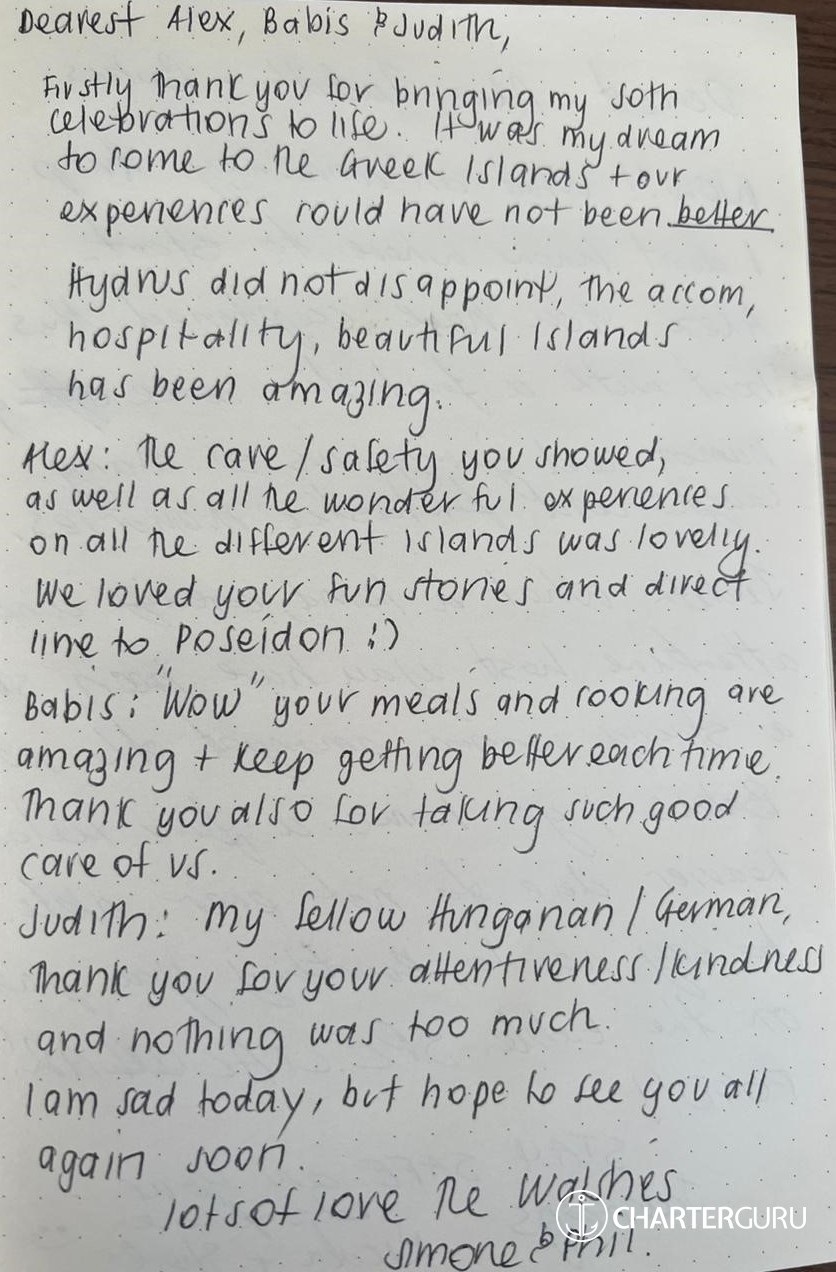 Dearest Alex, Babis & Judith,
Firstly thank you for bringing my 50th
celebrations to life. It was my dream
to come to the Greek Islands + our
experiences could have not been better.
Hydrus did not disappoint, the accom,
hospitality, beautiful islands
has been amazing.
Alex: the care/safety you showed,
as well as all the wonderful experiences
on all the different islands was lovely.
We loved your fun stories and direct
line to Poseidon :)
Babis: "Wow" your meals and cooking are
amazing + keep getting better each time.
Thank you also for taking such good
care of us.
Judith: My fellow Hungarian/German,
Thank you for your attentiveness/kindness
and nothing was too much.
I am sad today, but hope to see you all
again soon.
lots of love the
Simone & Phil.
CHARTERGURU